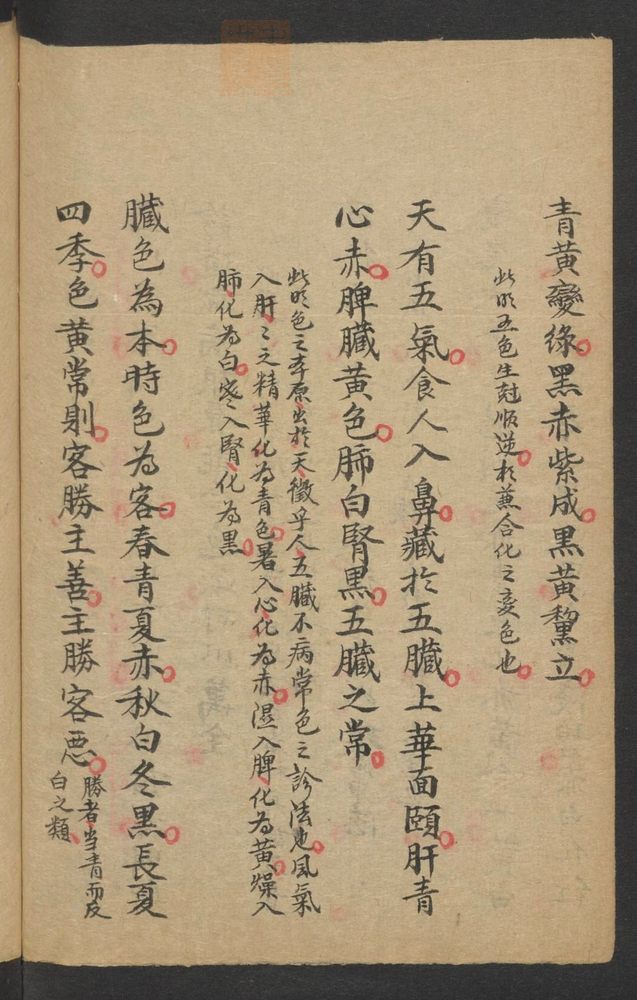 青黄變綠黑赤紫成黑黄黧立
此明五色生尅順逆於兼合化之变色也
天有五氣食人入鼻藏於五臟上華面頤肝青
心赤脾臟黄色肺白腎黒五臟之常
此明色之本原出於天徵乎人五臟不病常色之診法也風氣
入肝〻之精華化為青色暑入心化為赤濕入脾化為黄燥入
肺化為白寒入腎化為黒
臟色為本時色為客春青夏赤秋白冬黒長夏
四季色黄常則客勝主善主勝客悪
勝者当青而反
白之類